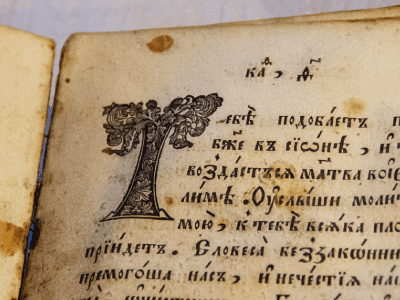 Тебѣ подобаетъ п
бж҃е въ сїѡ́нѣ, и т
воздастъсѧ мл҃тва во іе
лимѣ. Оуслыши моли
мою̀, к тебѣ всѧка пло
прїидетъ. Словеса беззаконни
премогоша насъ, и нечестїѧ на